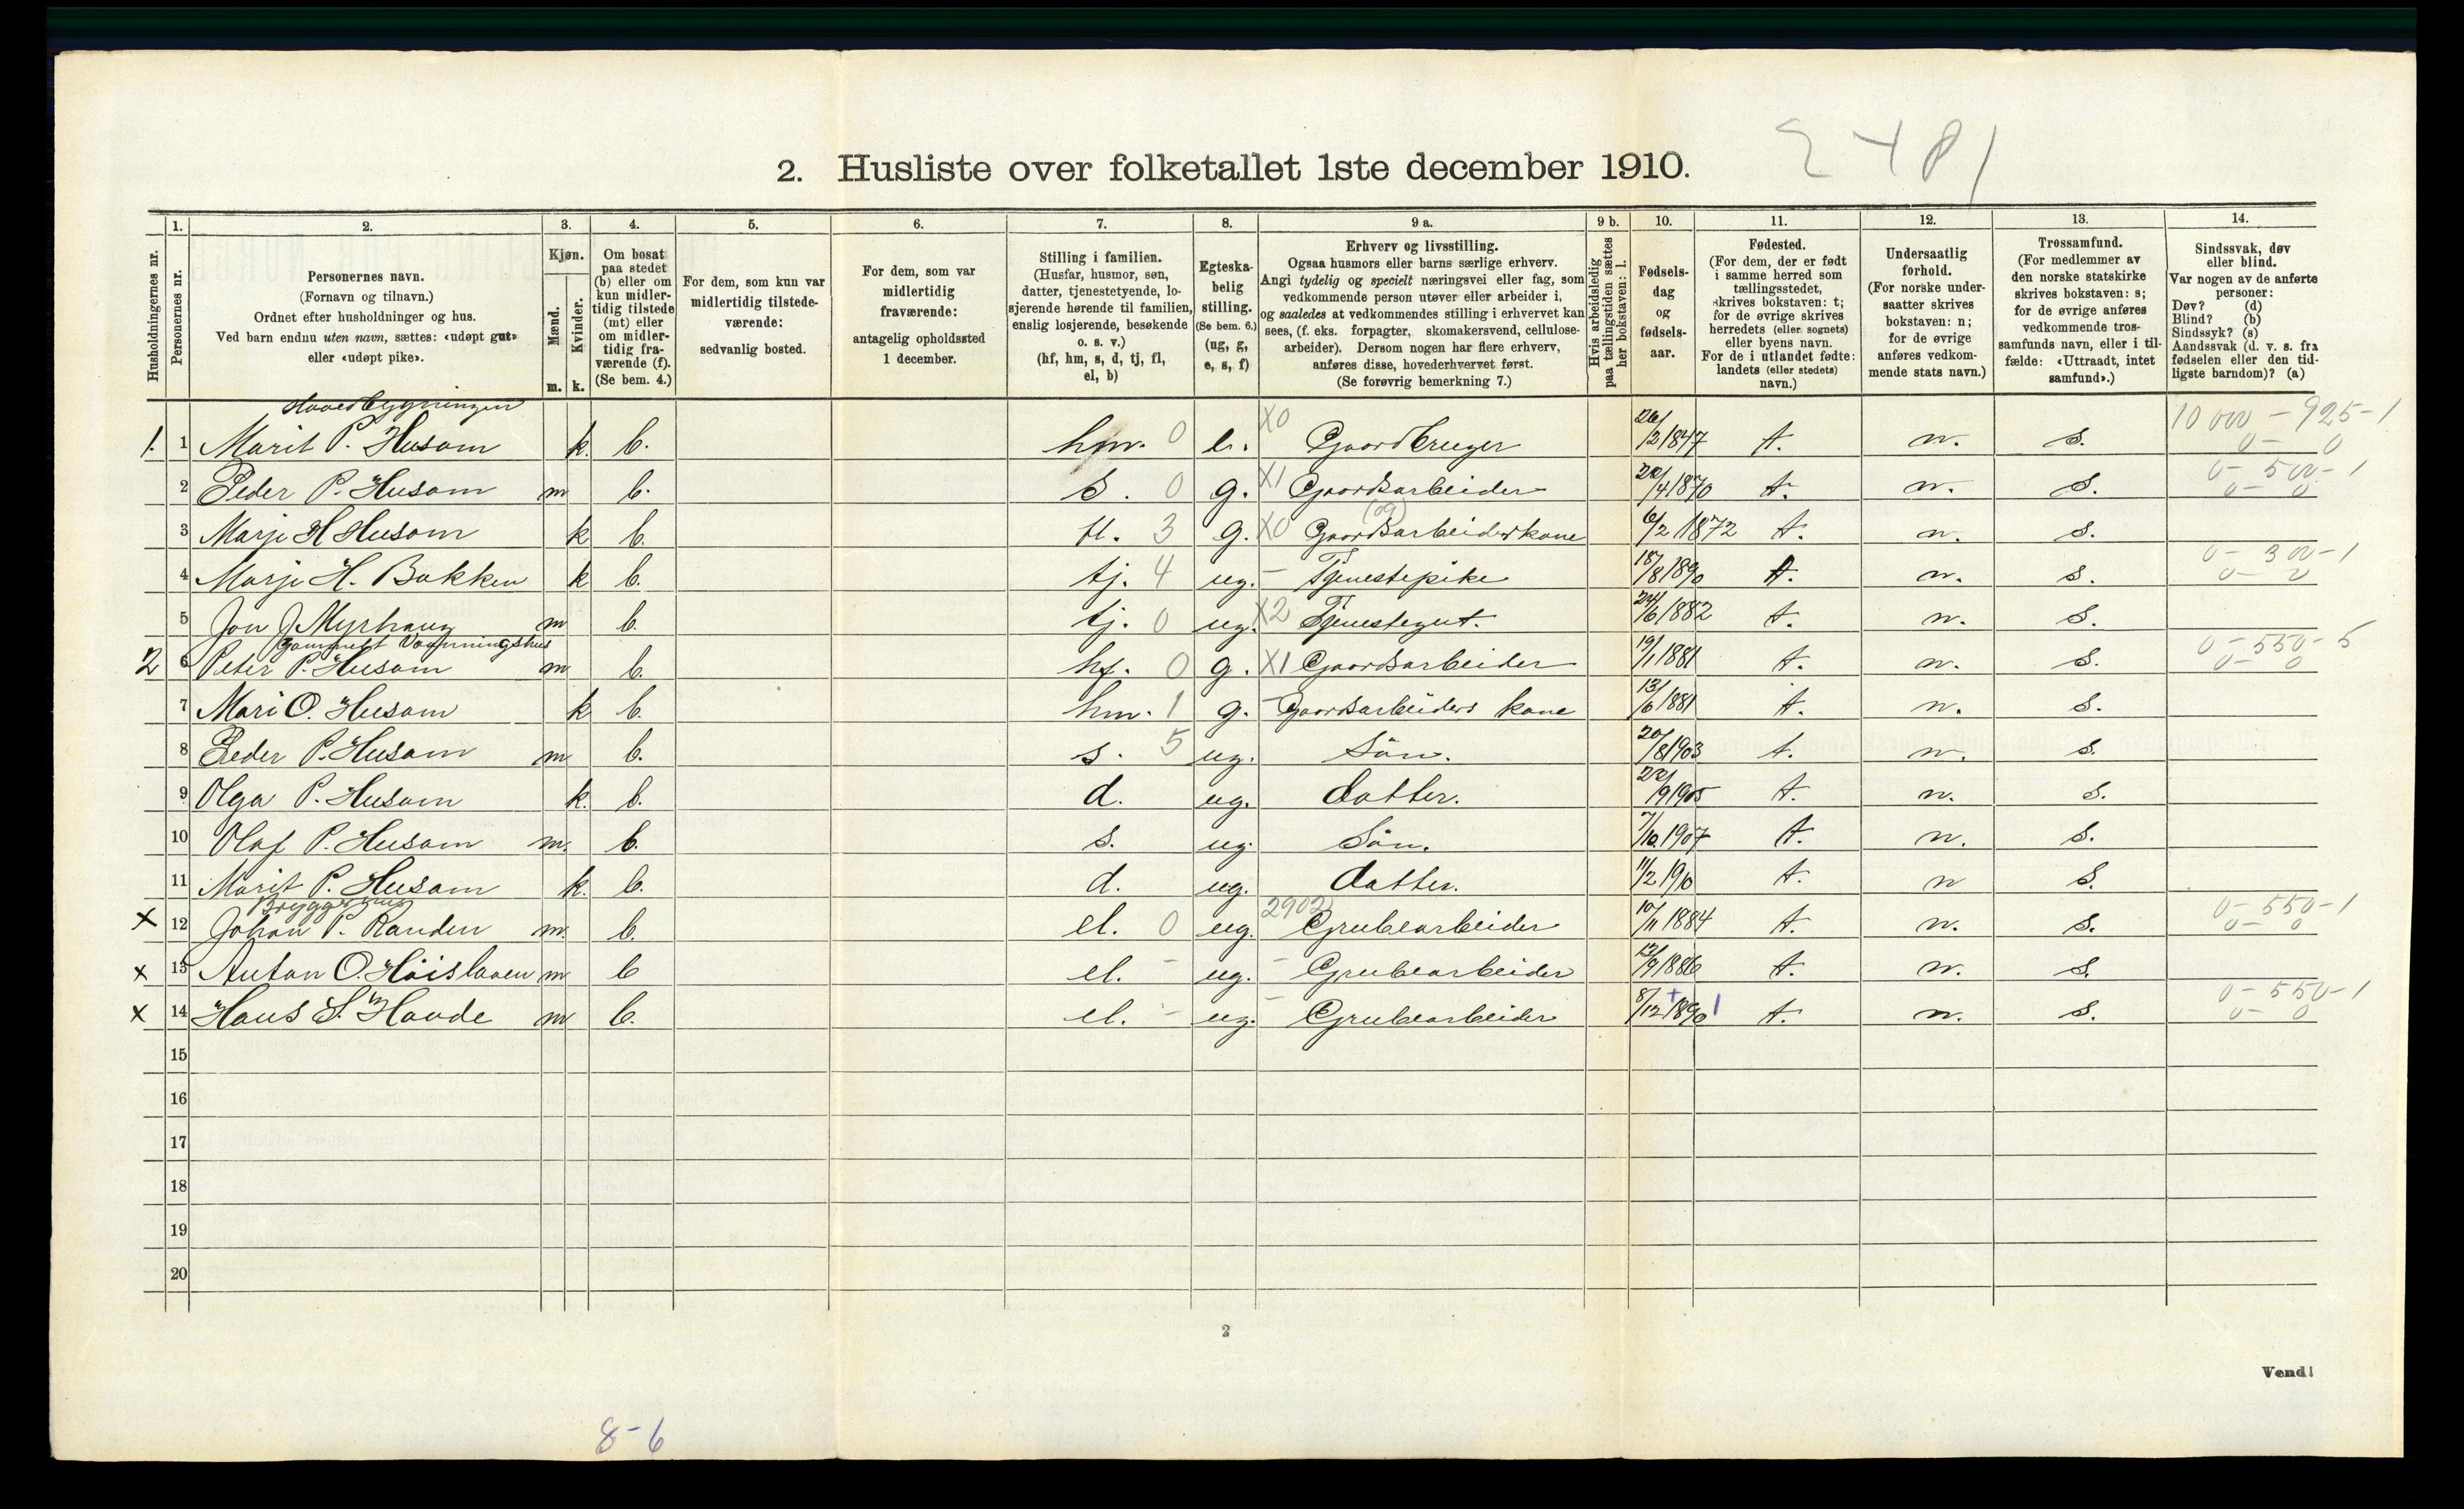 2481
2. Husliste over folketallet 1ste december 1910.
Husholdningernes nr.
1.
Personernes nr.
2.
Personernes navn.
(Fornavn og tilnavn.)
Ordnet efter husholdninger og hus.
Ved barn endnu uten navn, sættes: «udøpt gut»
eller «udøpt pike».
3.
Kjøn.
Mænd.
Kvinder.
m.
k.
4.
Om bosat
paa stedet
(b) eller om
kun midler-
tidig tilstede
(mt) eller
om midler-
tidig fra-
værende (f).
(Se bem. 4.)
5.
For dem, som kun var
midlertidig tilstede-
værende:
sedvanlig bosted.
6.
For dem, som var
midlertidig
fraværende:
antagelig opholdssted
1 december.
7.
Stilling i familien.
(Husfar, husmor, søn,
datter, tjenestetyende, lo-
sjerende hørende til familien,
enslig losjerende, besøkende
o. s. v.)
(hf, hm, s, d, tj, fl,
el, b)
8.
Egteska-
belig
stilling.
(Se bem. 6.)
(ug, g,
e, s, f)
9 a.
Erhverv og livsstilling.
Ogsaa husmors eller barns særlige erhverv.
Angi tydelig og specielt næringsvei eller fag, som
vedkommende person utøver eller arbeider i,
og saaledes at vedkommendes stilling i erhvervet kan
sees, (f. eks. forpagter, skomakersvend, cellulose-
arbeider). Dersom nogen har flere erhverv,
anføres disse, hovederhvervet først.
(Se forøvrig bemerkning 7.)
9 b.
Hvis arbeidsledig
paa tællingstiden sættes
her bokstaven: l.
10.
Fødsels-
dag
og
fødsels-
aar.
11.
Fødested.
(For dem, der er født
i samme herred som
tællingsstedet,
skrives bokstaven: t;
for de øvrige skrives
herredets (eller sognets)
eller byens navn.
For de i utlandet fødte:
landets (eller stedets)
navn.)
12.
Undersaatlig
forhold.
(For norske under-
saatter skrives
bokstaven: n;
for de øvrige
anføres vedkom-
mende stats navn.)
13.
Trossamfund.
(For medlemmer av
den norske statskirke
skrives bokstaven: s;
for de øvrige anføres
vedkommende tros-
samfunds navn, eller i til-
fælde: «Uttraadt, intet
samfund».)
14.
Sindssvak, døv
eller blind.
Var nogen av de anførte
personer:
Døv? (d)
Blind? (b)
Sindssyk? (s)
Aandssvak (d. v. s. fra
fødselen eller den tid-
ligste barndom)? (a)
Hovedbygningen
1. 1 Marit P. Husom k. b. hm. 0 e. X0 Gaardbruger 26/2 1847 t. n. s. 10 000 - 925 - 1 0 - 0
2 Peder P. Husom m b. s. 0 g. X1 Gaardsarbeider 22/4 1870 t. n. s. 0 - 500 - 1 0 - 0
3 Marje H Husom k b. fl. 3 g. X0 Gaardsarbeiderkone (og) 6/2 1872 t. n. s.
4 Marje H. Bakken k b. tj. 4 ug. - Tjenestepike 18/8 1890 t. n. s. 0 - 300 - 1 0 - 0
5 Jon J Myrhaug m b. tj. 0 ug. X2 Tjenestegut. 24/6 1882 t. n. s.
Gammelt Vaaningshus
2 6 Peter P. Husom m b. hf. 0 g. X1 Gaardsarbeider 19/1 1881 t. n. s. 0 - 550 - 5 0 - 0
7 Mari O. Husom k b. hm. 1 g. - Gaardsarbeiders kone 13/6 1881 t. n. s.
8 Peder P. Husom m b. s. 5 ug. Sön. 20/8 1903 t. n. s.
9 Olga P. Husom k. b. d. ug. datter. 22/9 1905 t. n. s.
10 Olaf P. Husom m. b. s. ug. Sön. 7/10 1907 t. n. s.
11 Marit P. Husom k. b. d. ug. datter. 11/2 1910 t. n s.
Bryggerhus
x 12 Johan P. Randen m. b. el. 0 ug. 2902 Grubearbeider 10/11 1884 t. n. s. 0 - 550 - 1 0 - 0
x 13 Anton O. Höislaaen m b el. - ug. - Grubearbeider 12/9 1886 t. n. s.
x 14 Hans S. Haade m b. el. - ug. - Grubearbeider 8/12 1890 1 t. n. s. 0 - 550 - 1 0 - 0
15
16
17
18
19
20
2
Vend!
8-6